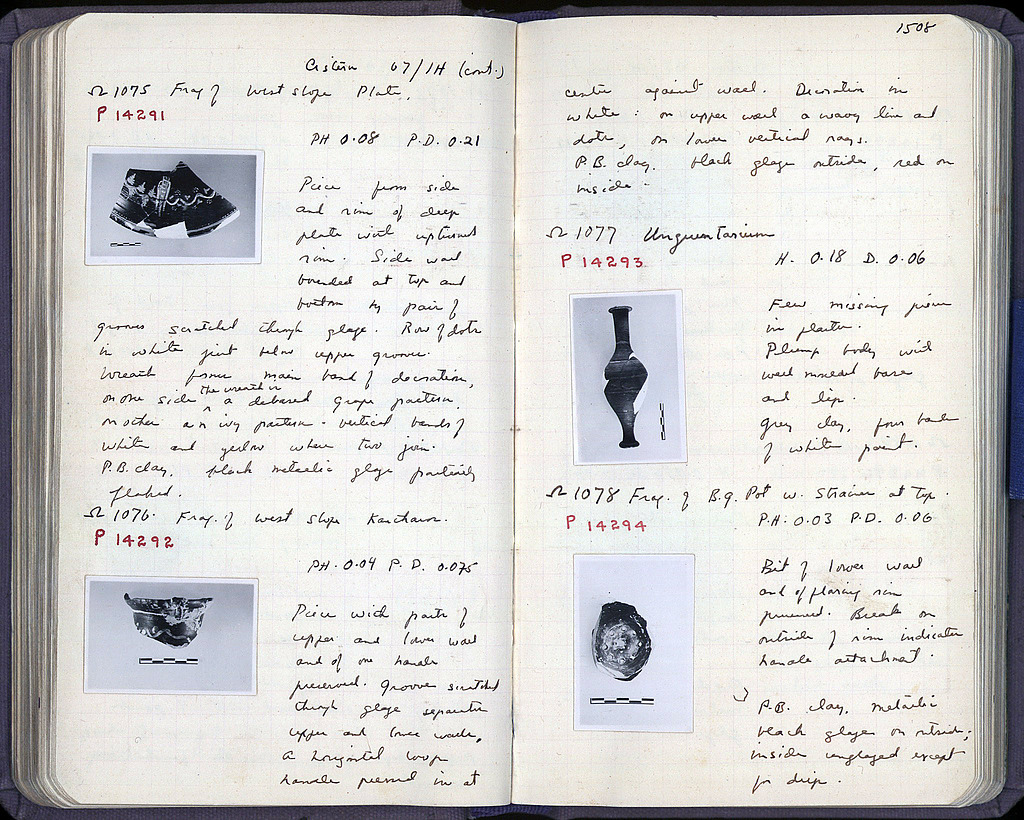 Cistern 07/1H (cont.)
Ω 1075 Frag. of West Slope Plate.
P 14291
PH 0.08 P.D. 0.21
Piece from side
and rim of deep
plate with upturned
rim. Side wall
bounded at top and
bottom by pair of
grooves scratched through glaze. Row of dots
in white just below upper groove.
Wreath forms main band of decoration,
on one side the wreath is a debased grape pattern,
on other an ivy pattern. Vertical bands of
white and yellow where two join.
P.B. clay, black metallic glaze
flaked.
Ω 1076. Frag. of West Slope Kantharos.
P 14292
PH. 0.04 P.D. 0.075
Piece with parts of
upper and lower wall
and of one handle
preserved. Groove scratched
through glaze separates
upper and lower walls,
A horizontal loop
handle pressed in at
1508
centre against wall. Decoration in
white: on upper wall a wavy line and
dots, on lower vertical rays.
P.B. clay. black glaze outside, red on
inside.
Ω 1077 Unguentarium
P 14293
H. 0.18 D. 0.06
Few missing pieces
in plaster.
Plump body with
well moulded base
and lip.
Grey clay, four bands
of white paint.
Ω 1078 Frag. of B.g. Pot w. Strainer at Top.
P 14294
P.H. 0.03 P.D. 0.06
Bit of lower wall
and of flaring rim
preserved. Break on
outside of rim indicates
handle attachment.
P.B. clay, metallic
black glaze on outside;
inside unglazed except
for drip.